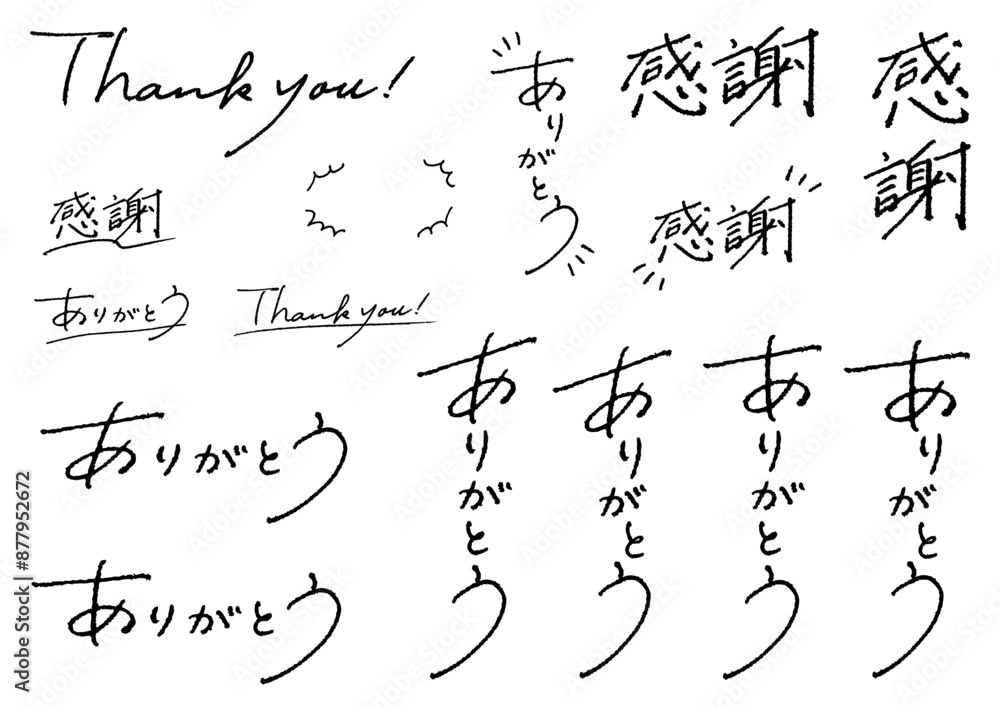 Thank you!
ありがとう
感謝
感謝
感謝
感謝
ありがとう
Thank you!
ありがとう
ありがとう
ありがとう
ありがとう
ありがとう
ありがとう
Adobe Stock | #877952672